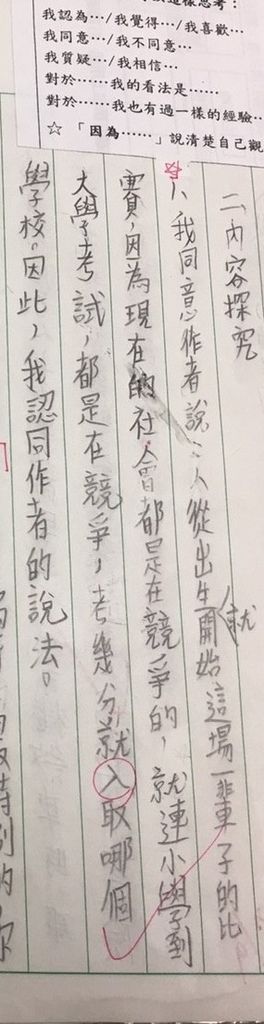 我認為…/我覺得…/我喜歡…
我同意…/我不同意…
我質疑…/我相信…
對於……我的看法是……
對於……我也有過一樣的經驗…
☆「因為……」說清楚自己觀
二、內容探究
1、我同意作者說:人從出生就開始這場一輩子的比
賽,因為現在的社會都是在競爭的,就連小學到
大學考試,都是在競爭,考幾分就入取哪個
學校。因此,我認同作者的說法。